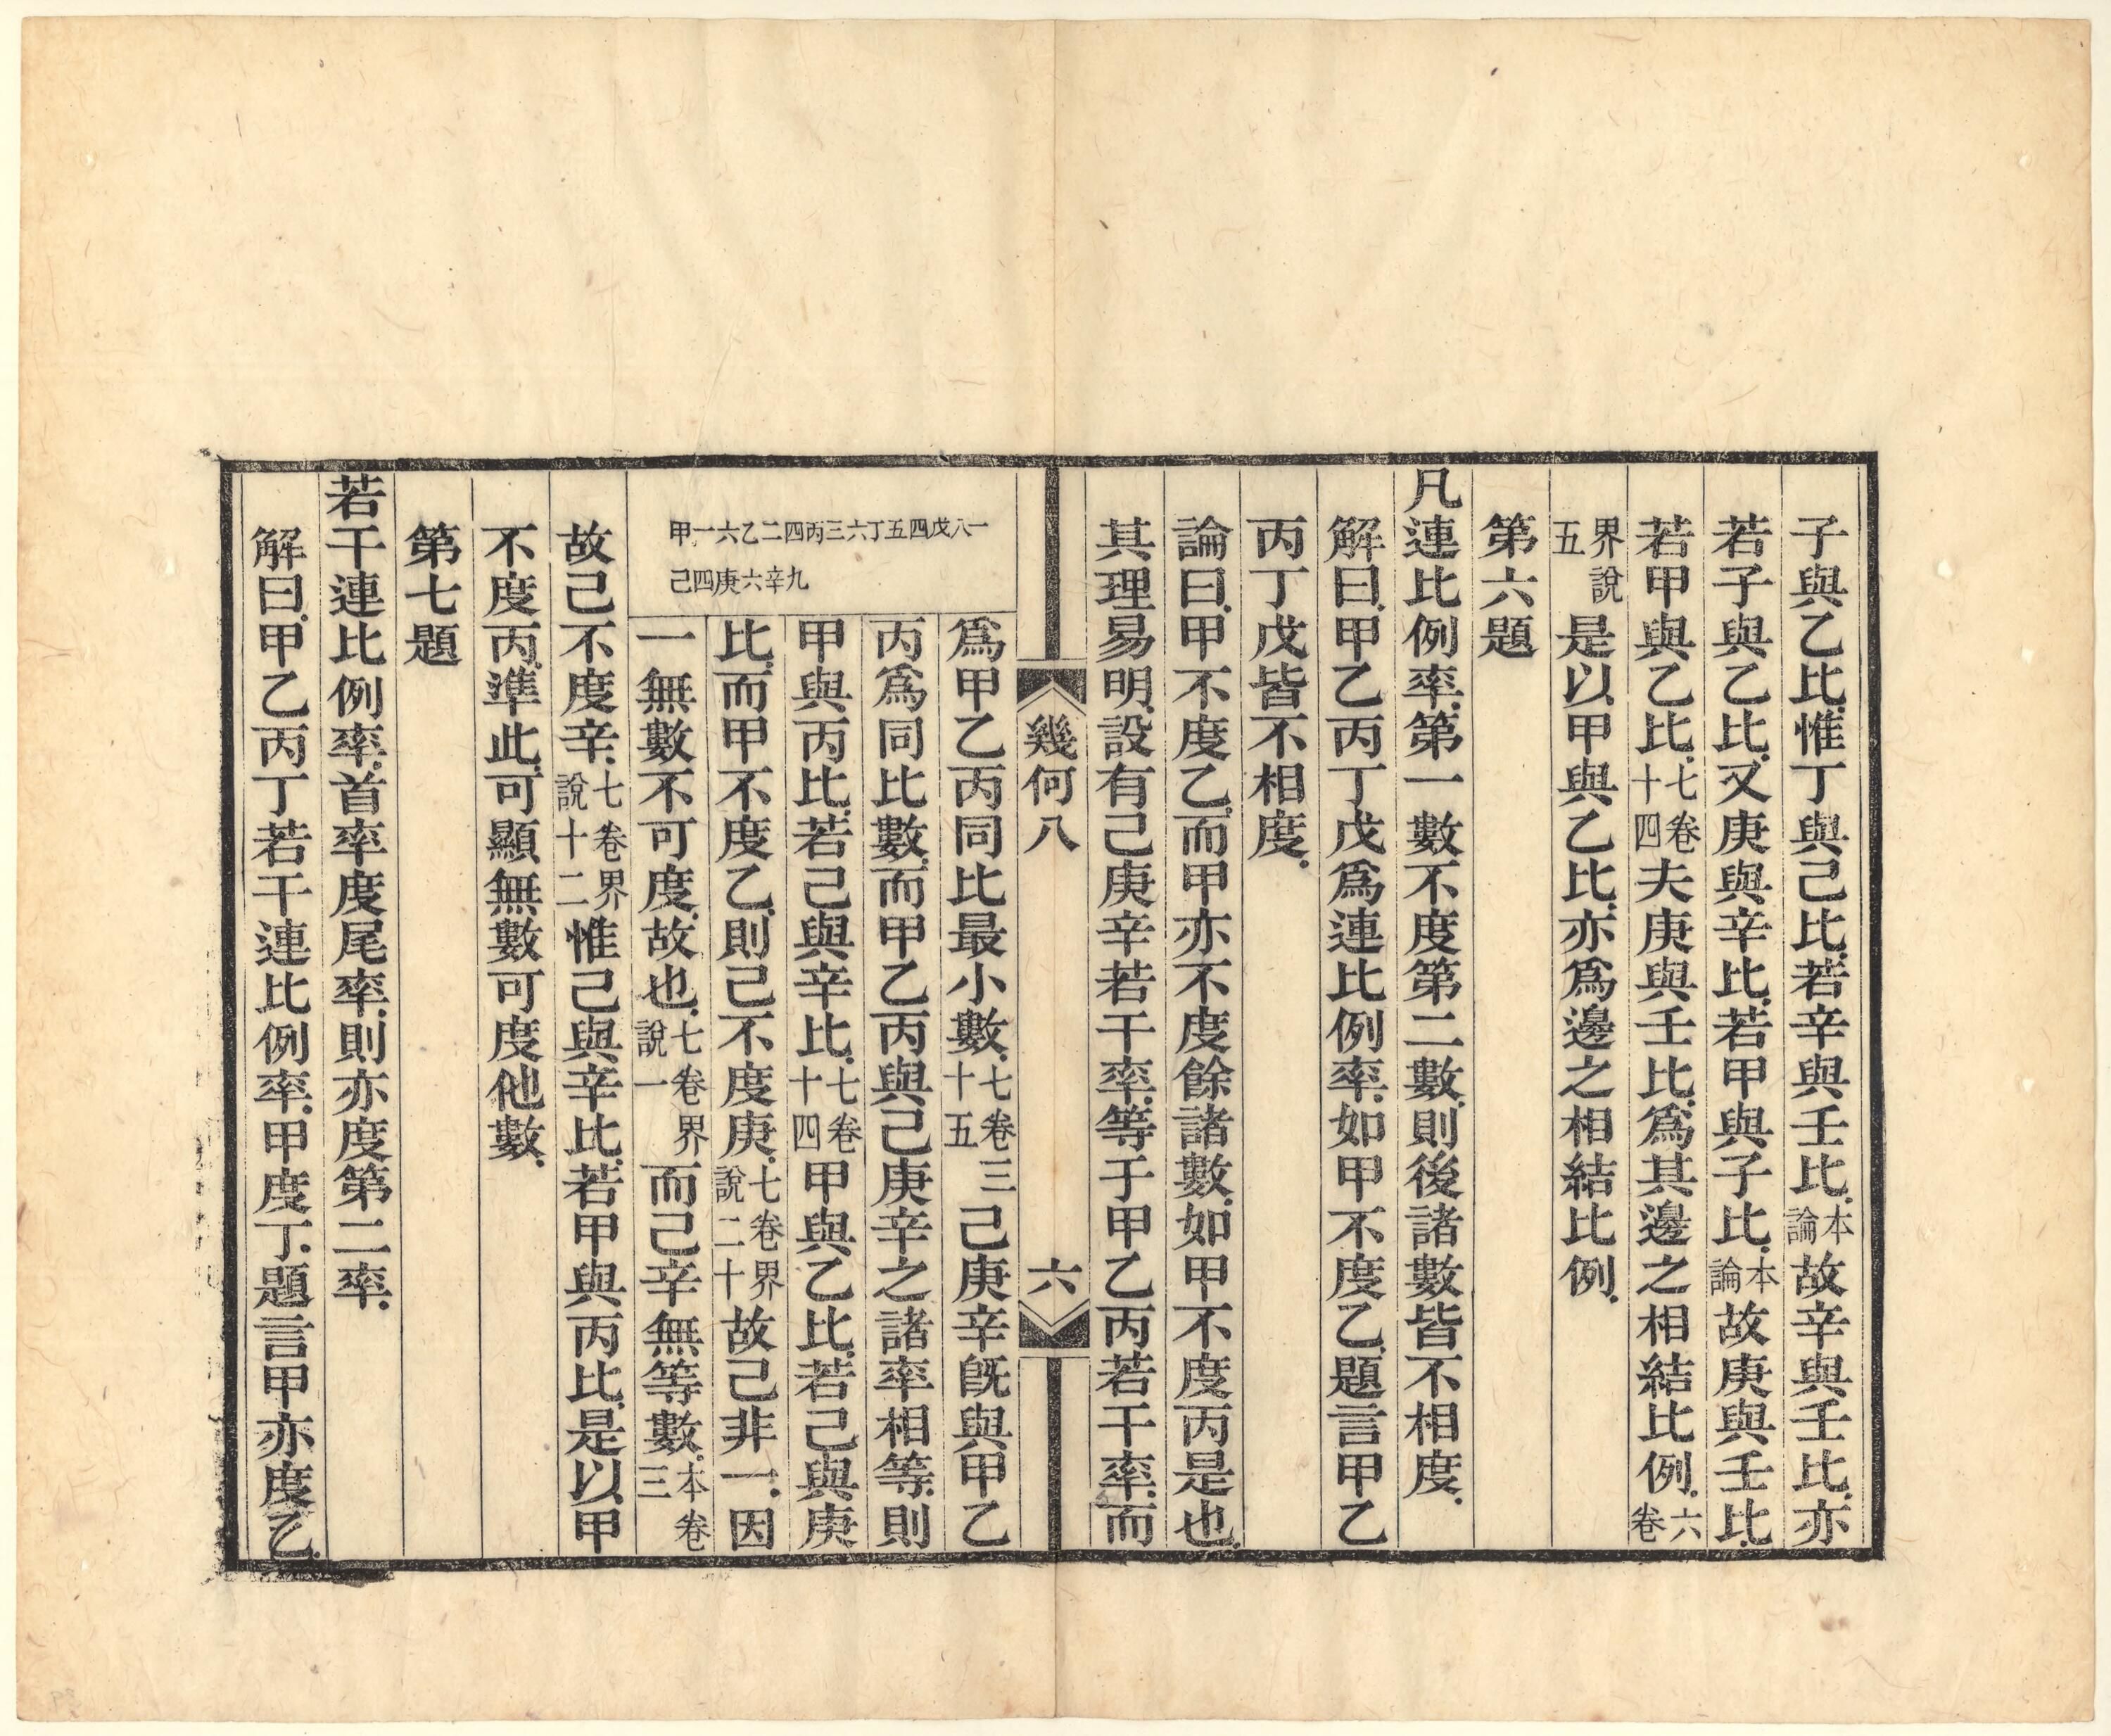 子與乙比惟丁與己比若辛與壬比本論故辛與壬比亦
若子與乙比又庚與辛比若甲與子比本論故庚與壬比
若甲與乙比七卷十四夫庚與壬比爲其邊之相結比例六卷
界說五是以甲與乙比亦爲邊之相結比例
第六題
凡連比例率第一數不度第二數則後諸數皆不相度
解曰甲乙丙丁戊爲連比例率如甲不度乙題言甲乙
丙丁戊皆不相度
論曰甲不度乙而甲亦不度餘諸數如甲不度丙是也
其理易明設有己庚辛若干率等于甲乙丙若干率而
幾何八
六
甲一六乙二四丙三六丁五四戊八一
己四庚六辛九
爲甲乙丙同比最小數七卷三十五己庚辛旣與甲乙
丙爲同比數而甲乙丙與己庚辛之諸率相等則
甲與丙比若己與辛比七卷十四甲與乙比若己與庚
比而甲不度乙則己不度庚七卷界說二十故己非一因
一無數不可度故也七卷界說一而己辛無等數本卷三
故己不度辛七卷界說十二惟己與辛比若甲與丙比是以甲
不度丙準此可顯無數可度他數
第七題
若干連比例率首率度尾率則亦度第二率
解曰甲乙丙丁若干連比例率甲度丁題言甲亦度乙